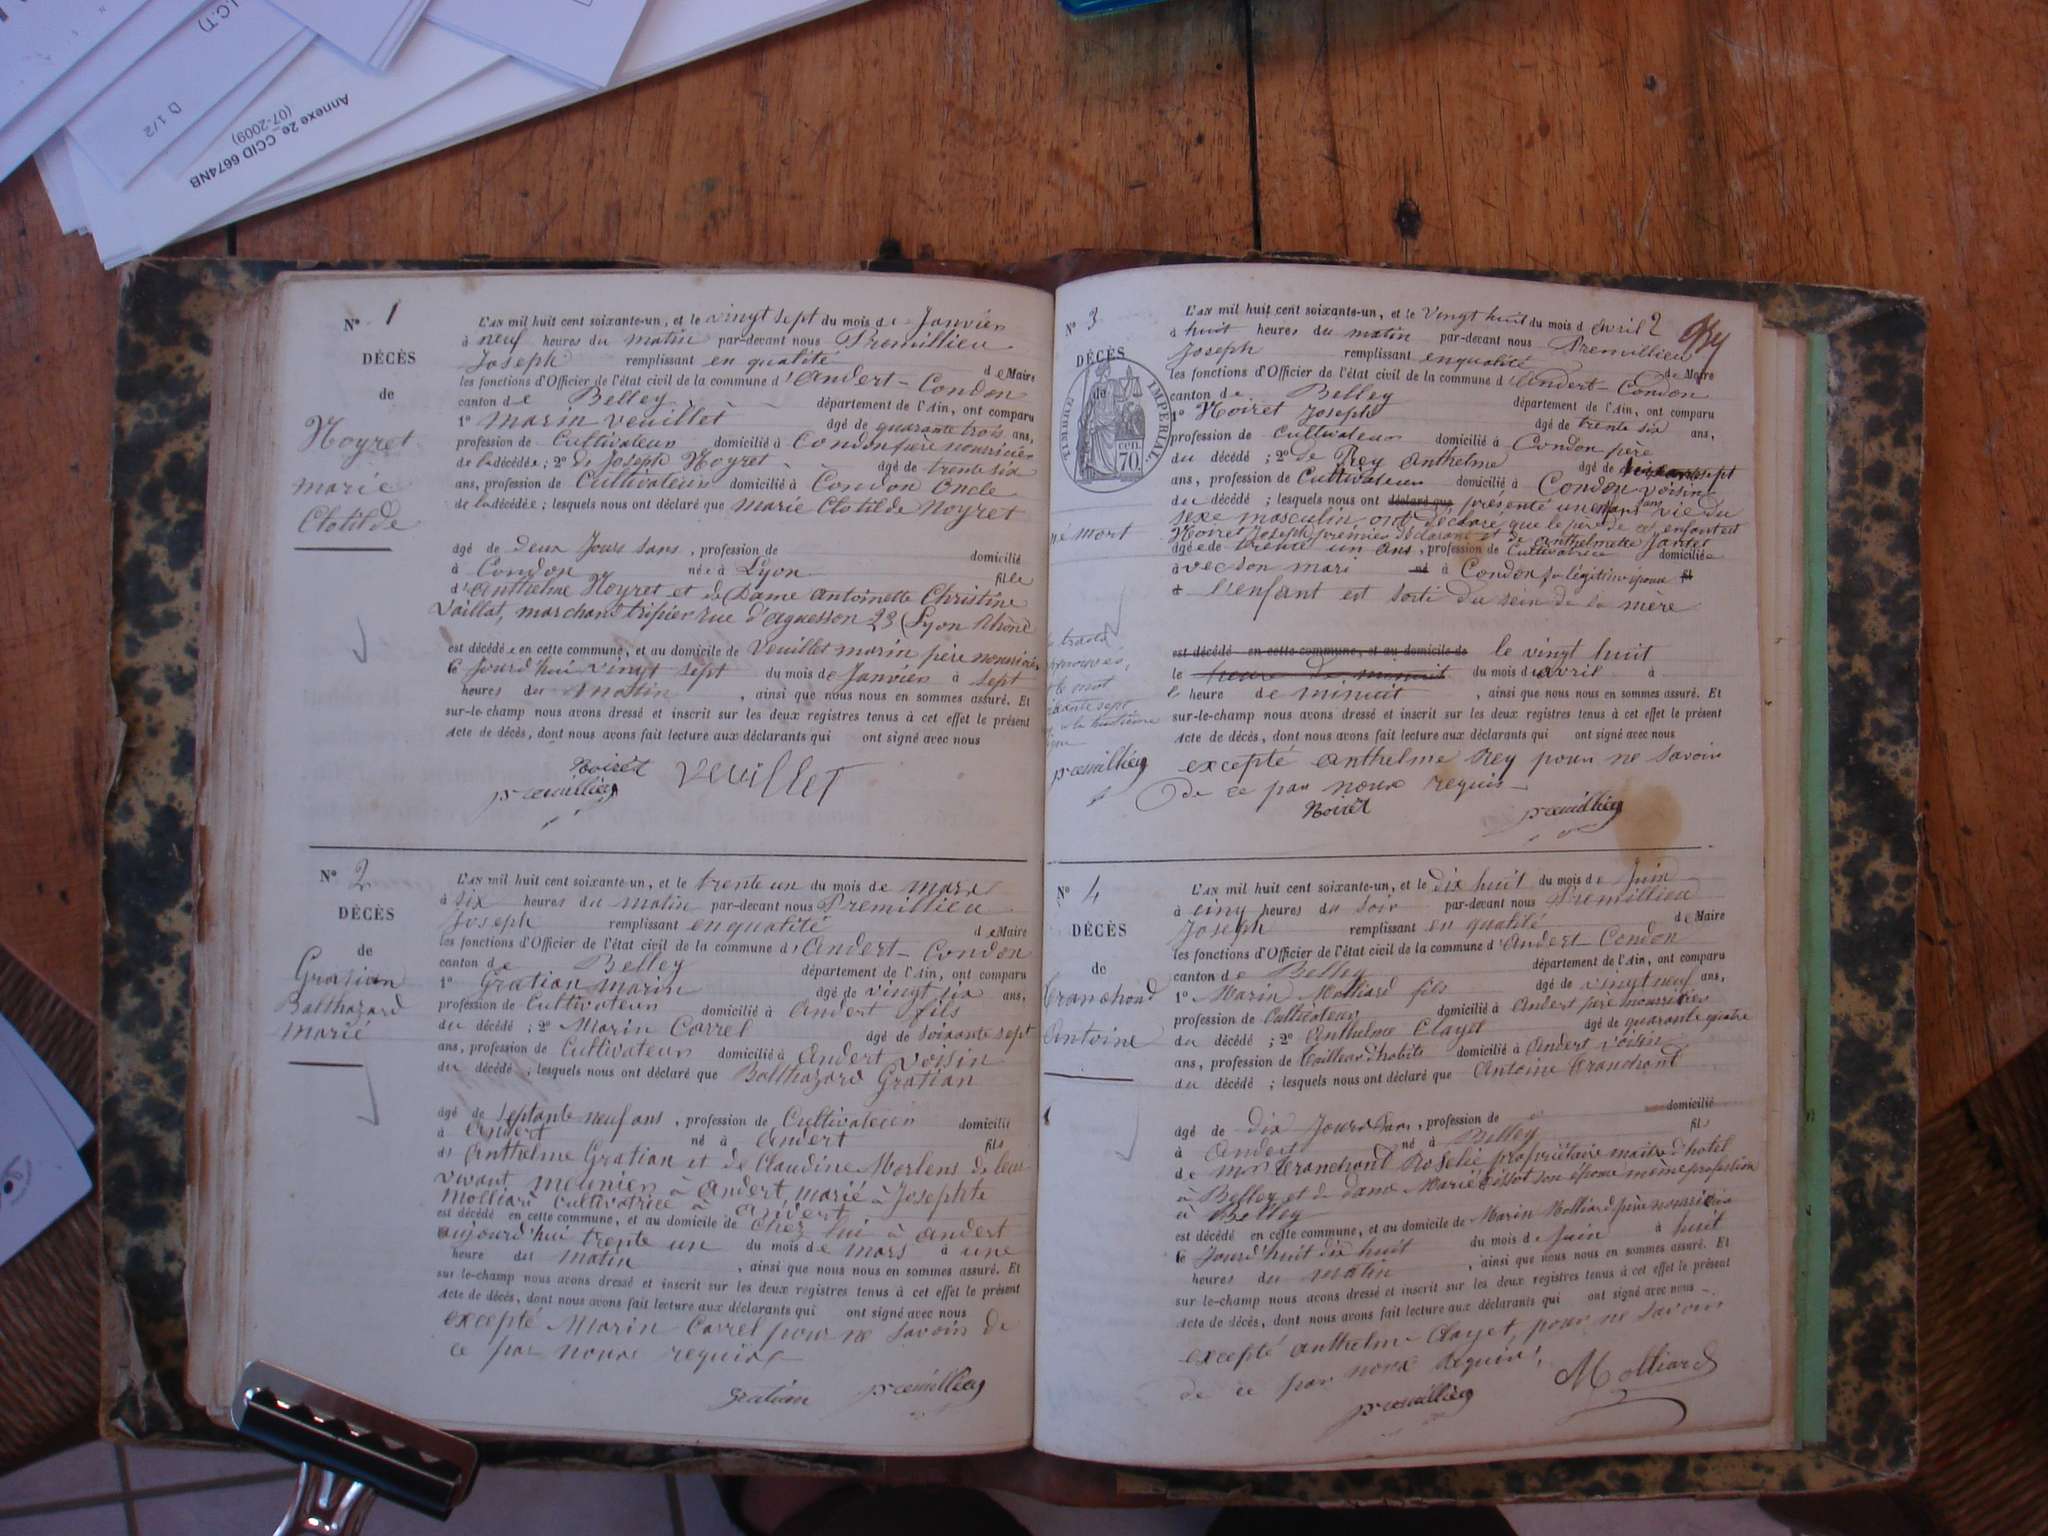 I.C.T)
D 1/2
Annexe 2e_CCID 6674NB
(07-2009)
N° 1
DÉCÈS
de
Noyret
marie
Clotilde
L'AN mil huit cent soixante-un, et le vingt sept du mois de Janvier
à neuf heures du matin par-devant nous Premillieu
Joseph remplissant en qualité de Maire
les fonctions d'Officier de l'état civil de la commune d'Andert-Condon
canton de Belley département de l'Ain, ont comparu
1° marin veuillet âgé de quarante trois ans,
profession de Cultivateur domicilié à Condon père nourricier
de la décédée; 2° de Joseph Noyret âgé de trente six
ans, profession de Cultivateur domicilié à Condon Oncle
de la décédée; lesquels nous ont déclaré que marie Clotilde Noyret
âgé de deux Jours sans, profession de domicilié
à Condon née à Lyon fille
d'Anthelme Noyret et de Dame Antoinette Christine
Vaillat, marchand tripier rue d'aguesson 23 (Lyon Rhône
est décédée en cette commune, et au domicile de Veuillet marin père nourricier
le Jourd'hui vingt sept du mois de Janvier à sept
heures du matin, ainsi que nous nous en sommes assuré. Et
sur-le-champ nous avons dressé et inscrit sur les deux registres tenus à cet effet le présent
Acte de décès, dont nous avons fait lecture aux déclarants qui ont signé avec nous
Noirèt veuillet
premillieu
N° 2
DÉCÈS
de
Gratian
Balthazard
marié
L'AN mil huit cent soixante-un, et le trente un du mois de mars
à six heures du matin par-devant nous Premillieu
Joseph remplissant en qualité de Maire
les fonctions d'Officier de l'état civil de la commune d'Andert-Condon
canton de Belley département de l'Ain, ont comparu
1° Gratian marin âgé de vingt six ans,
profession de Cultivateur domicilié à Andert fils
du décédé; 2° Marin Carrel âgé de soixante sept
ans, profession de Cultivateur domicilié à Andert voisin
du décédé; lesquels nous ont déclaré que Balthazard Gratian
âgé de septante neuf ans, profession de Cultivateur domicilié
à Andert né à Andert fils
d'Anthelme Gratian et de Claudine Merlens de leur
vivant meunier à Andert, marié à Josephte
Molliard cultivatrice à Andert
est décédé en cette commune, et au domicile de chez lui à Andert
aujourd'hui trente un du mois de mars à une
heure du matin, ainsi que nous nous en sommes assuré. Et
sur-le-champ nous avons dressé et inscrit sur les deux registres tenus à cet effet le présent
Acte de décès, dont nous avons fait lecture aux déclarants qui ont signé avec nous
excepté Marin Carrel pour ne savoir de
ce par nous requis
Gratian premillieu
N° 3
DÉCÈS
de
TIMBRE IMPÉRIAL
CEN. 70.
né mort
L'AN mil huit cent soixante-un, et le vingt huit du mois d'avril 2
à huit heures du matin par-devant nous Premillieu
Joseph remplissant en qualité de Maire
les fonctions d'Officier de l'état civil de la commune d'Andert-Condon
canton de Belley département de l'Ain, ont comparu
1° Noiret Joseph âgé de trente six ans,
profession de Cultivateur domicilié à Condon père
du décédé; 2° de Rey Anthelme âgé de sept
ans, profession de Cultivateur domicilié à Condon voisin
du décédé; lesquels nous ont déclaré que présenté un enfant sans vie du
sexe masculin, ont déclaré que le père de cet enfant est
Noiret Joseph premier déclarant et de Anthelmette Jantet
âgée de trente un ans, profession de Cultivatrice domiciliée
avec son mari né à Condon sa légitime épouse fil
+ l'enfant est sorti du sein de la mère
est décédé en cette commune, et au domicile de le vingt huit
le heure de minuit du mois d'avril à
l heure de minuit, ainsi que nous nous en sommes assuré. Et
sur-le-champ nous avons dressé et inscrit sur les deux registres tenus à cet effet le présent
Acte de décès, dont nous avons fait lecture aux déclarants qui ont signé avec nous
excepté Anthelme Rey pour ne savoir
de ce par nous requis
Noirèt premillieu
premillieu
N° 4
DÉCÈS
de
Tranchand
Antoine
L'AN mil huit cent soixante-un, et le dix huit du mois de Juin
à cinq heures du soir par-devant nous Premillieu
Joseph remplissant en qualité de Maire
les fonctions d'Officier de l'état civil de la commune d'Andert-Condon
canton de Belley département de l'Ain, ont comparu
1° Marin Molliard fils âgé de vingt neuf ans,
profession de Cultivateur domicilié à Andert père nourricier
du décédé; 2° Anthelme Clayet âgé de quarante quatre
ans, profession de tailleur d'habits domicilié à Andert voisin
du décédé; lesquels nous ont déclaré que Antoine Tranchant
âgé de dix Jours sans, profession de domicilié
à Andert né à Belley fils
de mr Tranchant Roselie propriétaire maitre d'hotel
à Belley et de dame Marie Tissot son épouse même profession
à Belley
est décédé en cette commune, et au domicile de Marin Molliard père nourricier
le Jourd'huit dix huit du mois de Juin à huit
heures du matin, ainsi que nous nous en sommes assuré. Et
sur-le-champ nous avons dressé et inscrit sur les deux registres tenus à cet effet le présent
Acte de décès, dont nous avons fait lecture aux déclarants qui ont signé avec nous
excepté Anthelme Clayet, pour ne savoir
de ce par nous Requis,
premillieu Molliard